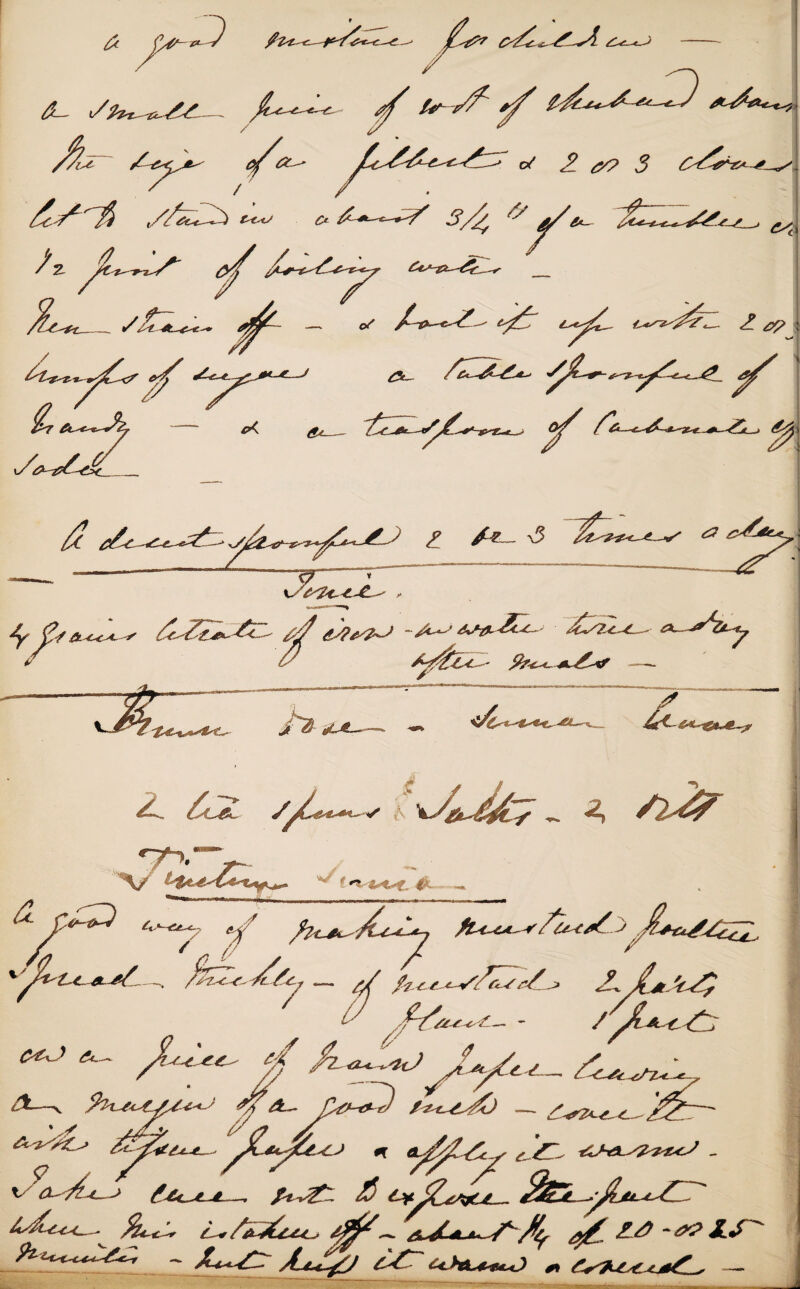 a good mixture for children —
a small piece of root of rhubard about
the size of a filbert & 2 or 3 cloves
let to stand in about 3/4" of a tumbler or
1/2 pint of boiling water —
then strain off — & boil it up with 2 or 3
lumps of sugar a table spoonful of
brandy — & a teaspoon of Carbonate of
soda —
A desert spoonful 2 or 3 times a day
Tonic.
4 grains Citrate of iron - in water twice a day
after meals —
Brown dose - Senna leaves
2 tea spoons Salts - 2 ditt
Tincture Senna
A good way of making mustard poultice
Spread thickly — of mustard 2 parts
flour - 1 part
on a piece of brown paper leaving
a margin of a good inch — cover it
with tissue paper & apply it warm -
Take care not to expose the part
when this is taken off - about 1/4 of 20 - or 25
minutes - but keep it warm & covered —